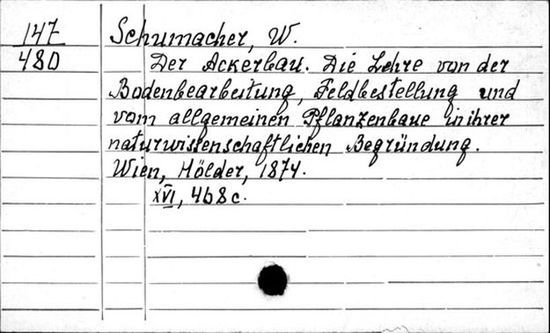 147
480
Schumacher, W.
Der Ackerbau. Die Lehre von der
Bodenbearbeitung, Feldbestellung und
vom allgemeinen Pflanzenbaue in ihrer
naturwissenschaftlichen Begründung.
Wien, Hölder, 1874.
XVI, 468 c.